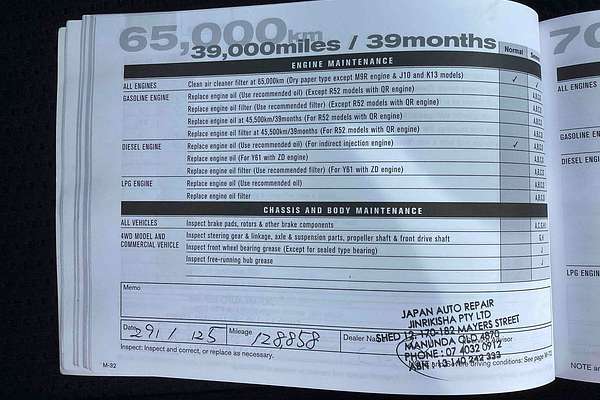 65,000km
39,000miles / 39months
Normal
ENGINE MAINTENANCE
ALL ENGINES Clean air cleaner filter at 65,000km (Dry paper type except M9R engine & J10 and K13 models) ✓ ✓
GASOLINE ENGINE Replace engine oil (Use recommended oil) (Except R52 models with QR engine) A,B,C,D
Replace engine oil filter (Use recommended oil) (Except R52 models with QR engine) A,B,C,D
Replace engine oil at 45,500km/39months (For R52 models with QR engine) A,B,C,D
Replace engine oil filter at 45,500km/39months (For R52 models with QR engine) A,B,C,D
DIESEL ENGINE Replace engine oil (Use recommended oil) (For indirect injection engine) ✓ A,B,C,D
Replace engine oil (For Y61 with ZD engine) A,B,C,D
Replace engine oil filter (Use recommended oil) (For Y61 with ZD engine) A,B,C,D
LPG ENGINE Replace engine oil (Use recommended oil) A,B,C,D
Replace engine oil filter A,B,C,D
CHASSIS AND BODY MAINTENANCE
ALL VEHICLES Inspect brake pads, rotors & other brake components
4WD MODEL AND COMMERCIAL VEHICLE Inspect steering gear & linkage, axle & suspension parts, propeller shaft & front drive shaft G,H
Inspect front wheel bearing grease (Except for sealed type bearing)
Inspect free-running hub grease ✓
Memo
Date 291 / 125 Mileage 128,858 Dealer
JAPAN AUTO REPAIR
JINRIKISHA PTY LTD
SHED 12, 170-182 MAYERS STREET
MANUNDA QLD 4870
PHONE : 07 4032 0912
ABN : 13 140 242 333
Inspect: Inspect and correct, or replace as necessary.
driving conditions: See page
M-32
70
ALL ENGINES
GASOLINE EN
DIESEL ENGIN
LPG ENGINE
NOTE